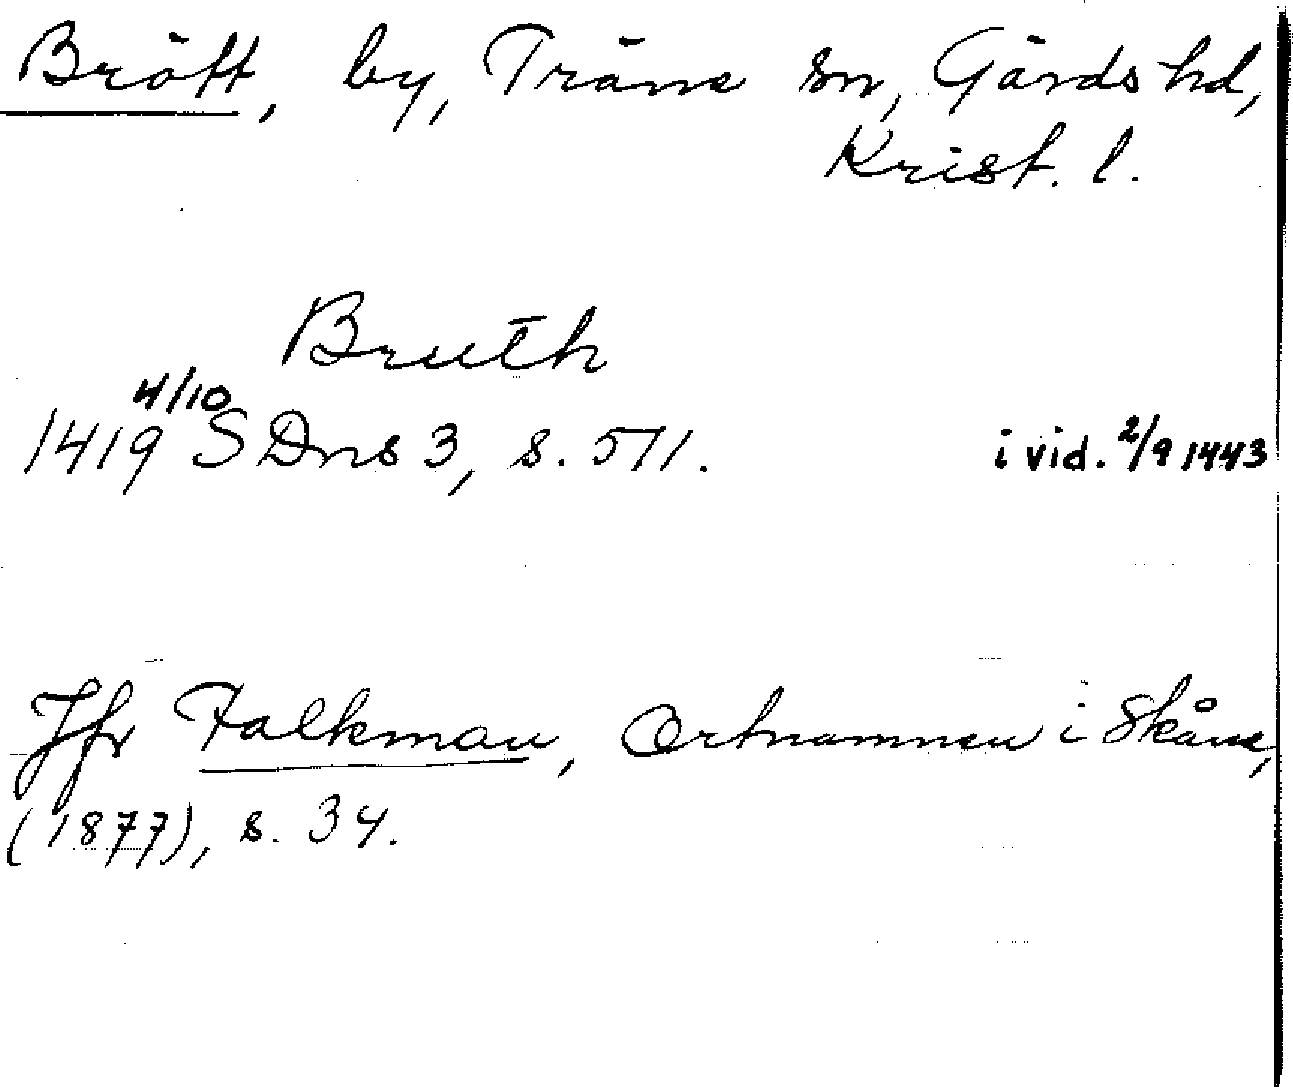 Brött, by, Träne sn, Gärds hd,
Krist. l.
Bruth
1419 4/10 SDns 3, s. 571. i vid. 2/9 1443
Jfr Falkman, Ortnamnen i Skåne,
(1877), s. 34.